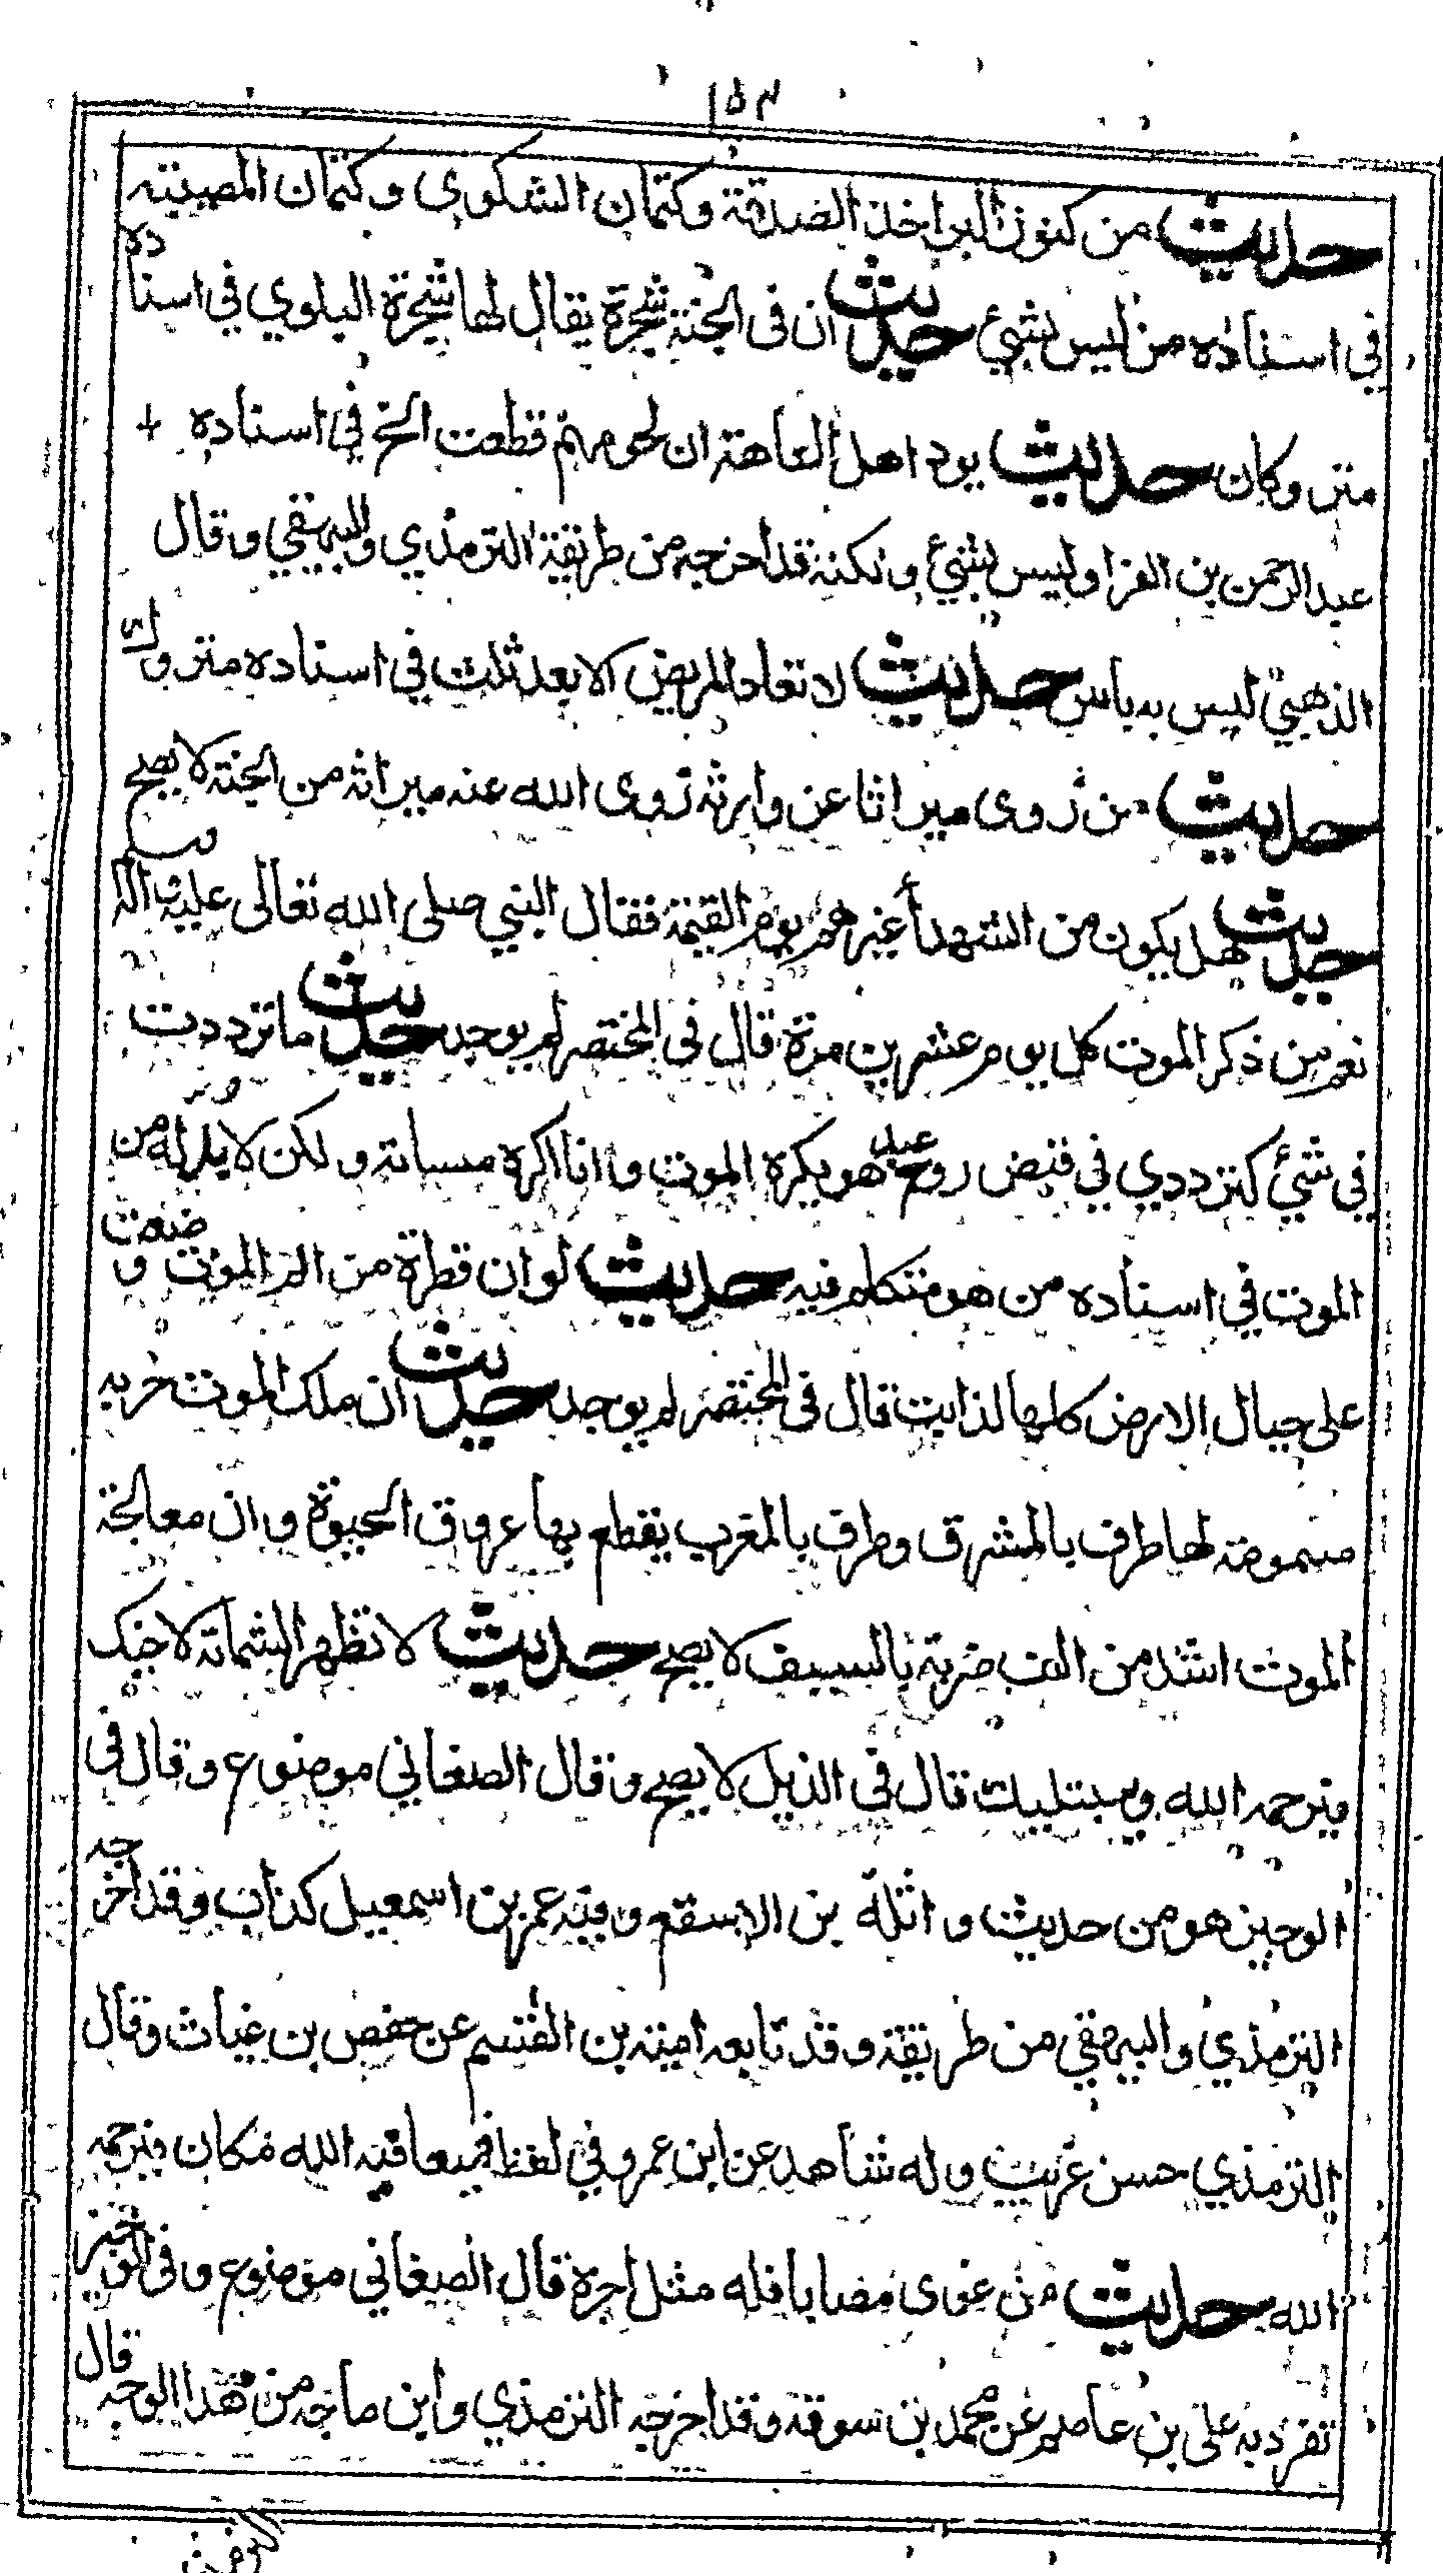 ١٥٣
حديث من كنوز البر اخذ الصدقة وكتمان الشكوى وكتمان المصيبته
في اسناده من ليس بشيء حديث ان فى الجنة شجرة يقال لها شجرة البلوي في اسناده
متروكان حديث يود اهل العاهة ان لحومهم قطعت الخ في اسناده
عبد الرحمن بن الغزا وليس بشيء ولكنه قد اخرجه من طريقة الترمذي والبيهقي وقال
الذهبي ليس به باس حديث لا تعاد المريض الا بعد ثلث في اسناده متروك
حديث من زوى ميراثا عن وارثه زوى الله عنه ميراثه من الجنة لا يصح
حديث هل يكون من الشهدأ غيرهم يوم القيمة فقال النبي صلى الله تعالى عليه و اله وسلم
نعم من ذكر الموت كل يوم عشرين مرة قال في المختصر لم يوجد حديث ما ترددت
في شيء كترددي في قبض روح عبد هو يكره الموت وانا اكره مساته ولكن لا بد له من
الموت في اسناده من هو متكلم فيه حديث لو ان قطرة من الم الموت وضعت
على جبال الارض كلها لذابت قال فى المختصر لم يوجد حديث ان ملك الموت حربه
مسمومة لها طرف بالمشرق وطرف بالمغرب يقطع بها عروق الحيوة وان معالجة
الموت اشد من الف ضربة بالسييف لا يصح حديث لا تظهر الشماتة لاخيك
فيرحمه الله ويبتليك قال فى الذيل لا يصح وقال الصغاني موضوع وقال فى
الوجيز هو من حديث واثلة بن الاسقع وفيه عمر بن اسمعيل كذاب وقد اخرجه
الترمذي والبيهقي من طريقة وقد تابعه امية بن القسم عن حفص بن غياث وقال
الترمذي حسن غريب وله شاهد عن ابن عمر وفي لفظ فيعافيه الله مكان فيرحمه
الله حديث من عزى مصابا فله مثل اجره قال الصغاني موضوع وفى الوجيز
تفرد به على بن عاصم عن محمد بن سوقة وقد اخرجه الترمذي وابن ماجه من هذا الوجه قال